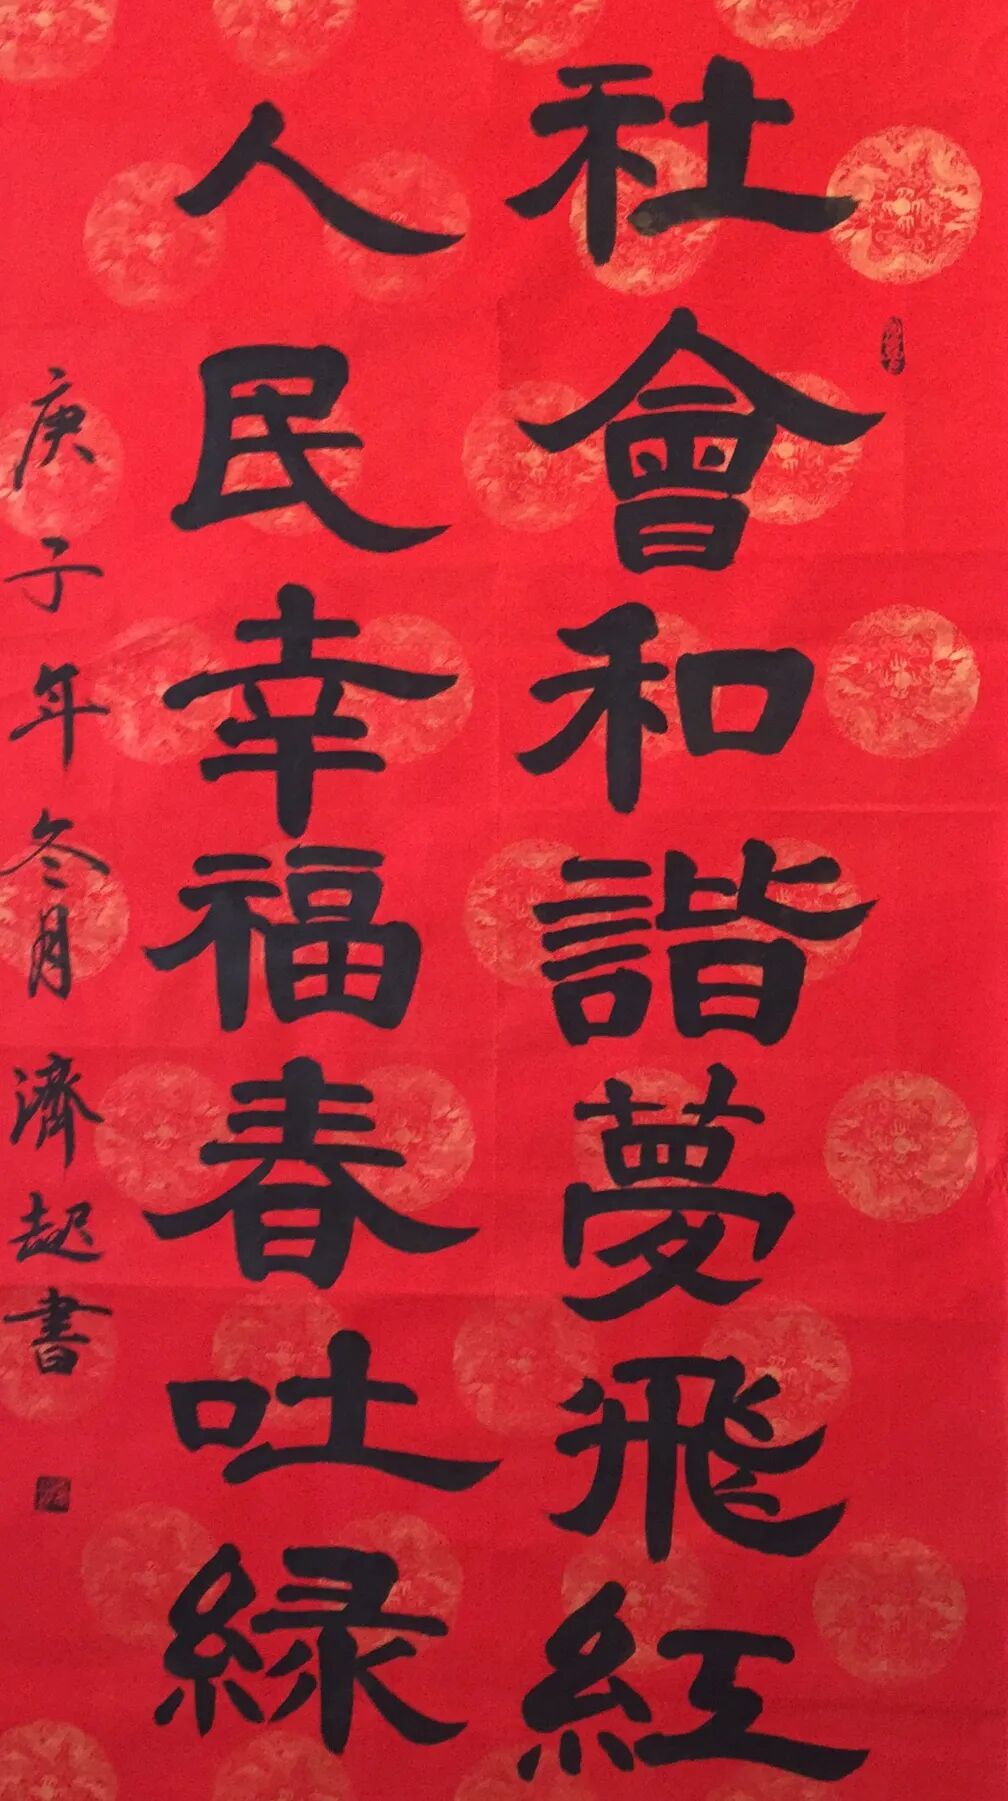 社會和諧夢飛紅
人民幸福春吐緑
庚子年冬月濟起書